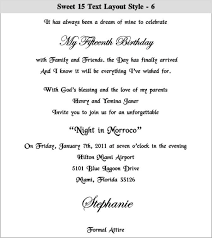 Sweet 15 Text Layout Style - 6
It has always been a dream of mine to celebrate
My Fifteenth Birthday
with Family and Friends, the Day has finally arrived
And I know it will be everything I've wished for.
With God's blessing and the love of my parents
Henry and Yemina Janer
Invite you to join us for an unforgettable
"Night in Morroco"
On Friday, January 7th, 2011 at seven o'clock in the evening
Hilton Miami Airport
5101 Blue Lagoon Drive
Miami, Florida 55126
Stephanie
Formal Attire